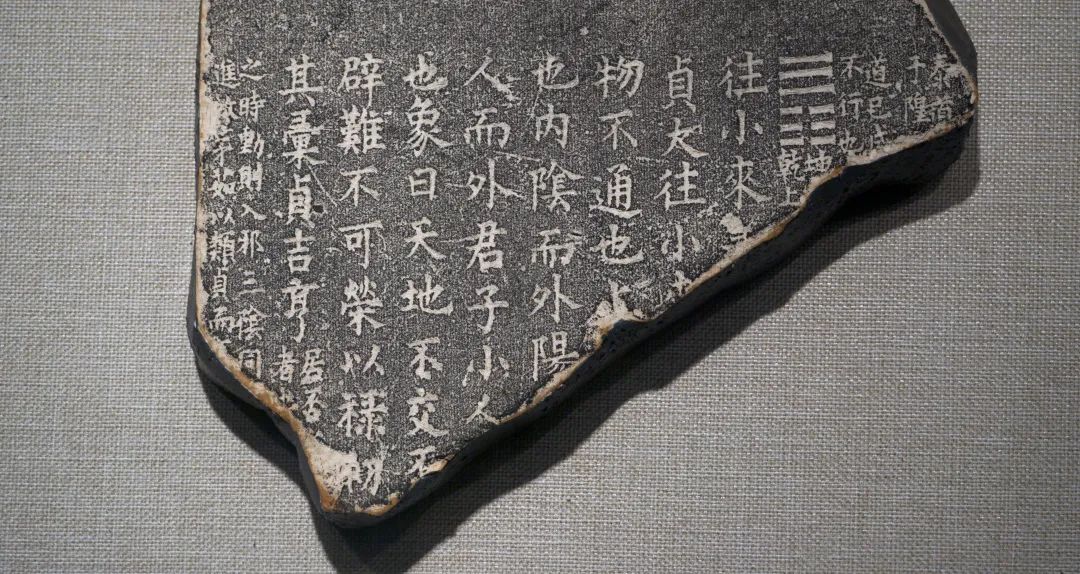 于隍
道已成
不行也
乾上
往小來
貞大往小
物不通也上
也內陰而外陽
人而外君子小人
也象曰天地不交
辟難不可榮以祿初
其彙貞吉亨
居否
者
之時動則入邪三陰同
茅茹以類貞而